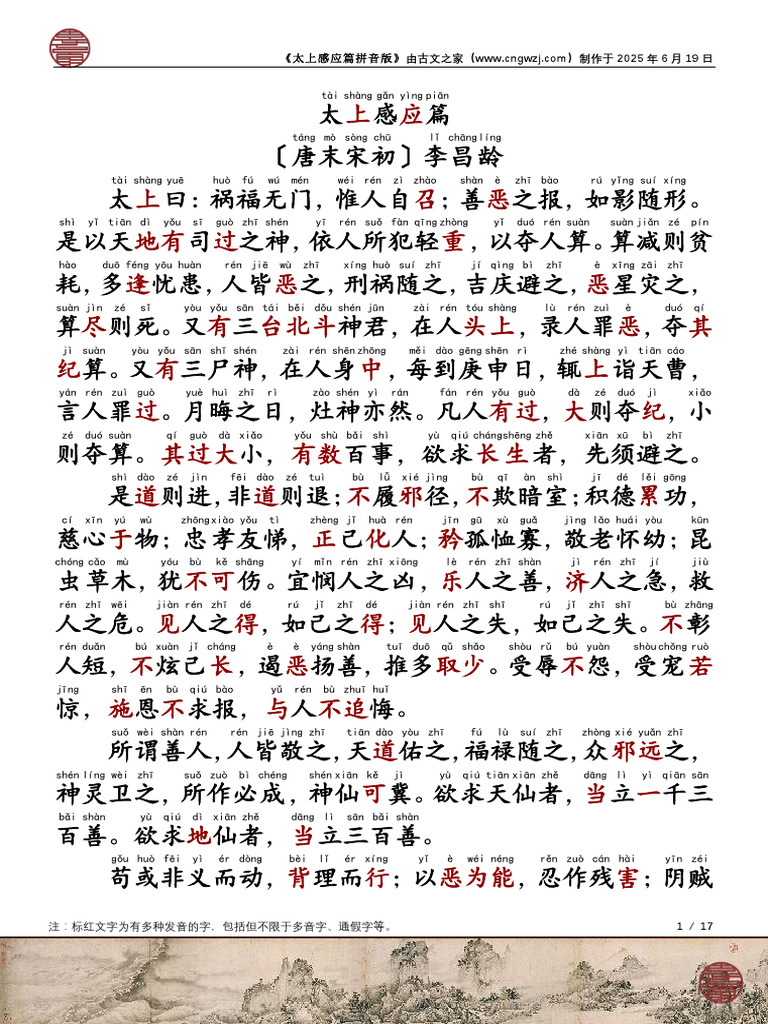 《太上感应篇拼音版》由古文之家（www.cngwzj.com）制作于 2025 年 6 月 19 日
tài shàng gǎn yìng piān
太上感应篇
táng mò sòng chū lǐ chāng líng
〔唐末宋初〕李昌龄
tài shàng yuē huò fú wú mén wéi rén zì zhào shàn è zhī bào rú yǐng suí xíng
太上曰：祸福无门，惟人自召；善恶之报，如影随形。
shì yǐ tiān dì yǒu sī guò zhī shén yī rén suǒ fàn qīng zhòng yǐ duó rén suàn suàn jiǎn zé pín
是以天地有司过之神，依人所犯轻重，以夺人算。算减则贫
hào duō féng yōu huàn rén jiē wù zhī xíng huò suí zhī jí qìng bì zhī è xīng zāi zhī
耗，多逢忧患，人皆恶之，刑祸随之，吉庆避之，恶星灾之，
suàn jìn zé sǐ yòu yǒu sān tái běi dǒu shén jūn zài rén tóu shàng lù rén zuì è duó qí
算尽则死。又有三台北斗神君，在人头上，录人罪恶，夺其
jì suàn yòu yǒu sān shī shén zài rén shēn zhōng měi dào gēng shēn rì zhé shàng yì tiān cáo
纪算。又有三尸神，在人身中，每到庚申日，辄上诣天曹，
yán rén zuì guò yuè huì zhī rì zào shén yì rán fán rén yǒu guò dà zé duó jì xiǎo
言人罪过。月晦之日，灶神亦然。凡人有过，大则夺纪，小
zé duó suàn qí guò dà xiǎo yǒu shù bǎi shì yù qiú cháng shēng zhě xiān xū bì zhī
则夺算。其过大小，有数百事，欲求长生者，先须避之。
shì dào zé jìn fēi dào zé tuì bù lǚ xié jìng bù qī àn shì jī dé lěi gōng
是道则进，非道则退；不履邪径，不欺暗室；积德累功，
cí xīn yú wù zhōng xiào yǒu tì zhèng jǐ huà rén jīn gū xù guǎ jìng lǎo huái yòu kūn
慈心于物；忠孝友悌，正己化人；矜孤恤寡，敬老怀幼；昆
chóng cǎo mù yóu bù kě shāng yí mǐn rén zhī xiōng lè rén zhī shàn jì rén zhī jí jiù
虫草木，犹不可伤。宜悯人之凶，乐人之善，济人之急，救
rén zhī wēi jiàn rén zhī dé rú jǐ zhī dé jiàn rén zhī shī rú jǐ zhī shī bù zhāng
人之危。见人之得，如己之得；见人之失，如己之失。不彰
rén duǎn bú xuàn jǐ cháng è è yáng shàn tuī duō qǔ shǎo shòu rǔ bú yuàn shòu chǒng ruò
人短，不炫己长，遏恶扬善，推多取少。受辱不怨，受宠若
jīng shī ēn bù qiú bào yǔ rén bù zhuī huǐ
惊，施恩不求报，与人不追悔。
suǒ wèi shàn rén rén jiē jìng zhī tiān dào yòu zhī fú lù suí zhī zhòng xié yuǎn zhī
所谓善人，人皆敬之，天道佑之，福禄随之，众邪远之，
shén líng wèi zhī suǒ zuò bì chéng shén xiān kě jì yù qiú tiān xiān zhě dāng lì yì qiān sān
神灵卫之，所作必成，神仙可冀。欲求天仙者，当立一千三
bǎi shàn yù qiú dì xiān zhě dāng lì sān bǎi shàn
百善。欲求地仙者，当立三百善。
gǒu huò fēi yì ér dòng bèi lǐ ér xíng yǐ è wéi néng rěn zuò cán hài yīn zéi
苟或非义而动，背理而行；以恶为能，忍作残害；阴贼
注：标红文字为有多种发音的字，包括但不限于多音字、通假字等。 1 / 17